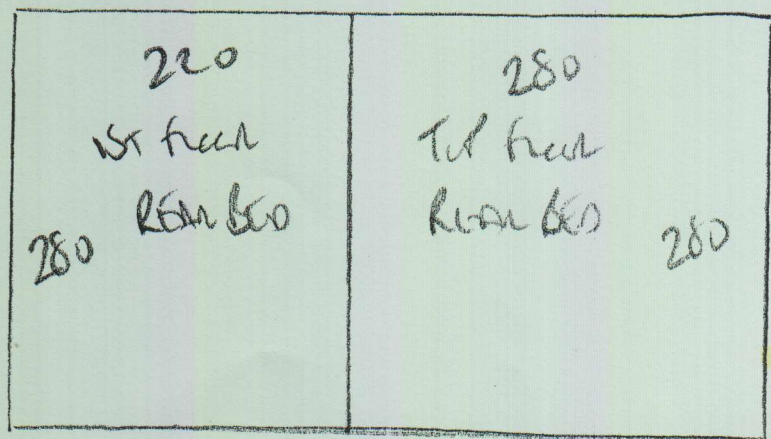 220
1ST FLOOR
REAR BED
280
280
TOP FLOOR
REAR BED
280